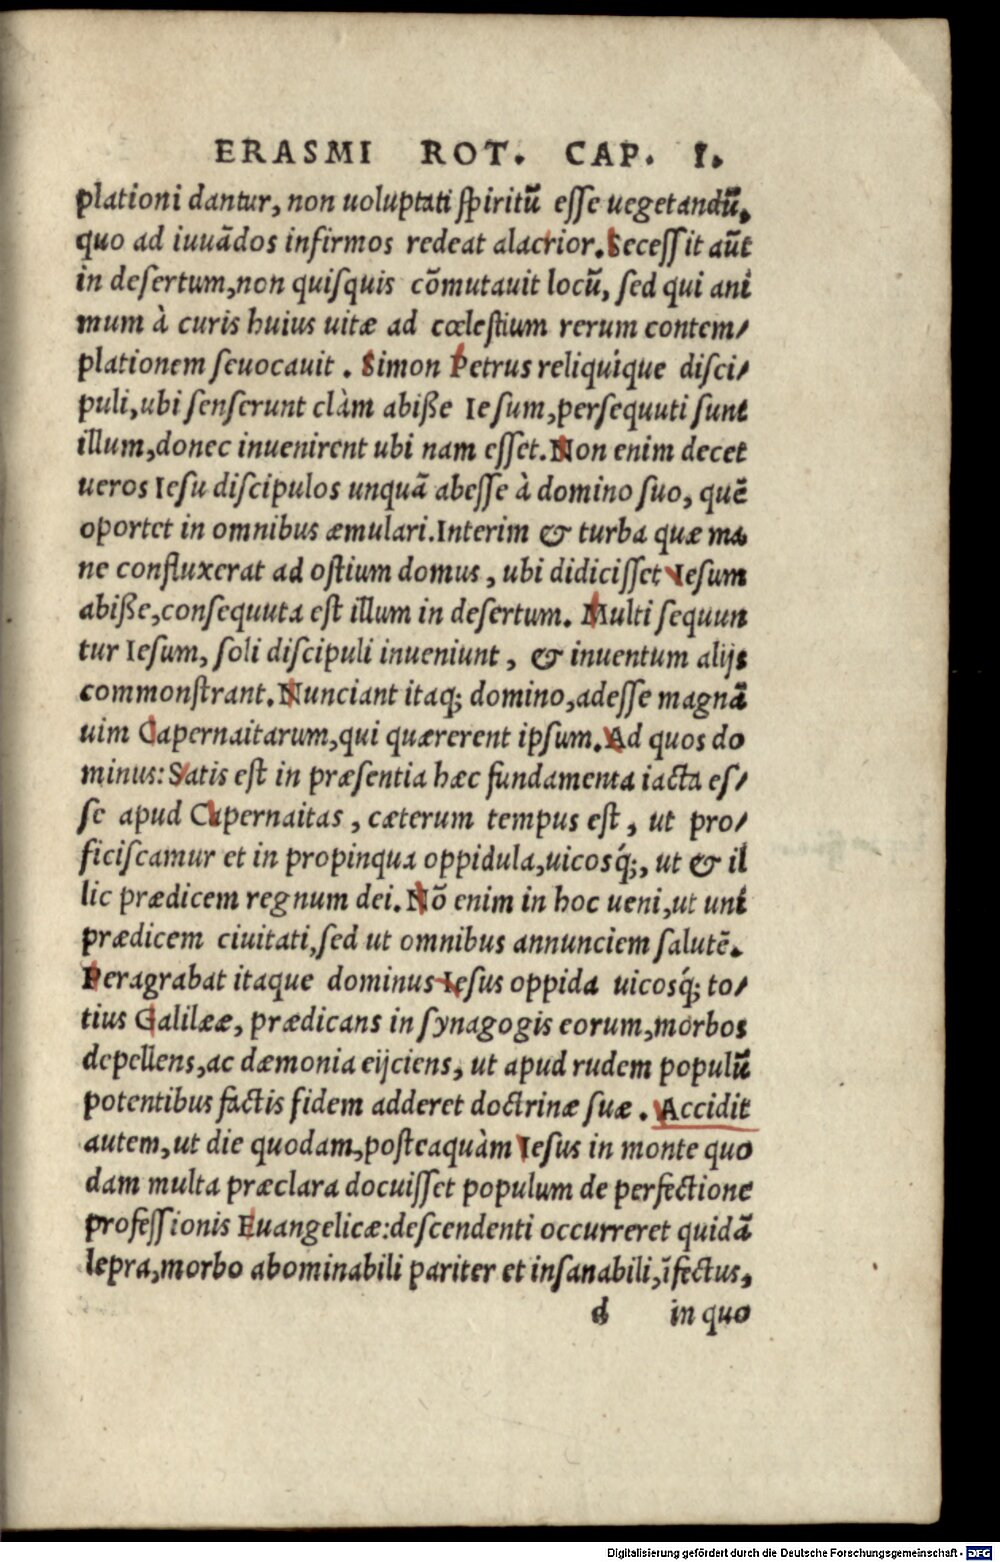 ERASMI ROT. CAP. I.
plationi dantur, non uoluptati spiritũ esse uegetandũ,
quo ad iuuãdos infirmos redeat alacrior. Secessit aũt
in desertum, non quisquis cõmutauit locũ, sed qui ani
mum à curis huius uitæ ad cœlestium rerum contem/
plationem seuocauit. Simon Petrus reliquique disci/
puli, ubi senserunt clàm abiße Iesum, persequuti sunt
illum, donec inuenirent ubi nam esset. Non enim decet
ueros Iesu discipulos unquã abesse à domino suo, quẽ
oportet in omnibus æmulari. Interim & turba quæ ma
ne confluxerat ad ostium domus, ubi didicisset Iesum
abiße, consequuta est illum in desertum. Multi sequun
tur Iesum, soli discipuli inueniunt, & inuentum alijs
commonstrant. Nunciant itaq; domino, adesse magnã
uim Capernaitarum, qui quærerent ipsum. Ad quos do
minus: Satis est in præsentia hæc fundamenta iacta es/
se apud Capernaitas, cæterum tempus est, ut pro/
ficiscamur et in propinqua oppidula, uicosq́;, ut & il
lic prædicem regnum dei. Nõ enim in hoc ueni, ut uni
prædicem ciuitati, sed ut omnibus annunciem salutẽ.
Peragrabat itaque dominus Iesus oppida uicosq́; to/
tius Galilææ, prædicans in synagogis eorum, morbos
depellens, ac dæmonia eijciens, ut apud rudem populũ
potentibus factis fidem adderet doctrinæ suæ. Accidit
autem, ut die quodam, posteaquàm Iesus in monte quo
dam multa præclara docuisset populum de perfectione
professionis Euangelicæ: descendenti occurreret quidã
lepra, morbo abominabili pariter et insanabili, ĩfectus,
d in quo
Digitalisierung gefördert durch die Deutsche Forschungsgemeinschaft - DFG